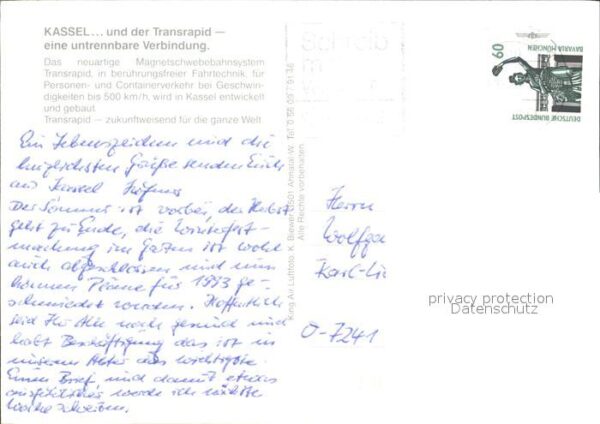 KASSEL... und der Transrapid —
eine untrennbare Verbindung.
Das neuartige Magnetschwebebahnsystem
Transrapid, in berührungsfreier Fahrtechnik, für
Personen- und Containerverkehr bei Geschwin-
digkeiten bis 500 km/h, wird in Kassel entwickelt
und gebaut
Transrapid — zukunftweisend für die ganze Welt
Ein Lebenszeichen und die
herzlichsten Grüße senden Euch
aus Kassel
Der Sommer ist vorbei, der Herbst
geht zu Ende, die Winterfest-
machung im Garten ist wohl
auch abgeschlossen und nun
können Pläne für 1993 ge-
schmiedet werden. Hoffentlich
seid Ihr Alle noch gesund und
habt Beschäftigung das ist in
unserem Alter das wichtigste.
Einen Brief und damit etwas
ausführlicher werde ich nächste
Woche schreiben.
King Air Luftfoto, K. Biewer
Alle Rechte vorbehalten
Schreib
m
Herrn
Wolfga
Karl-Li
O-7241
60
BAVARIA MÜNCHEN
DEUTSCHE BUNDESPOST
privacy protection
Datenschutz